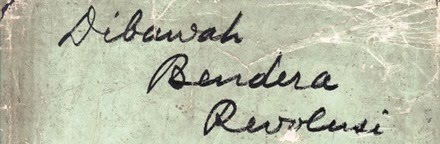 Dibawah
Bendera
Revolusi